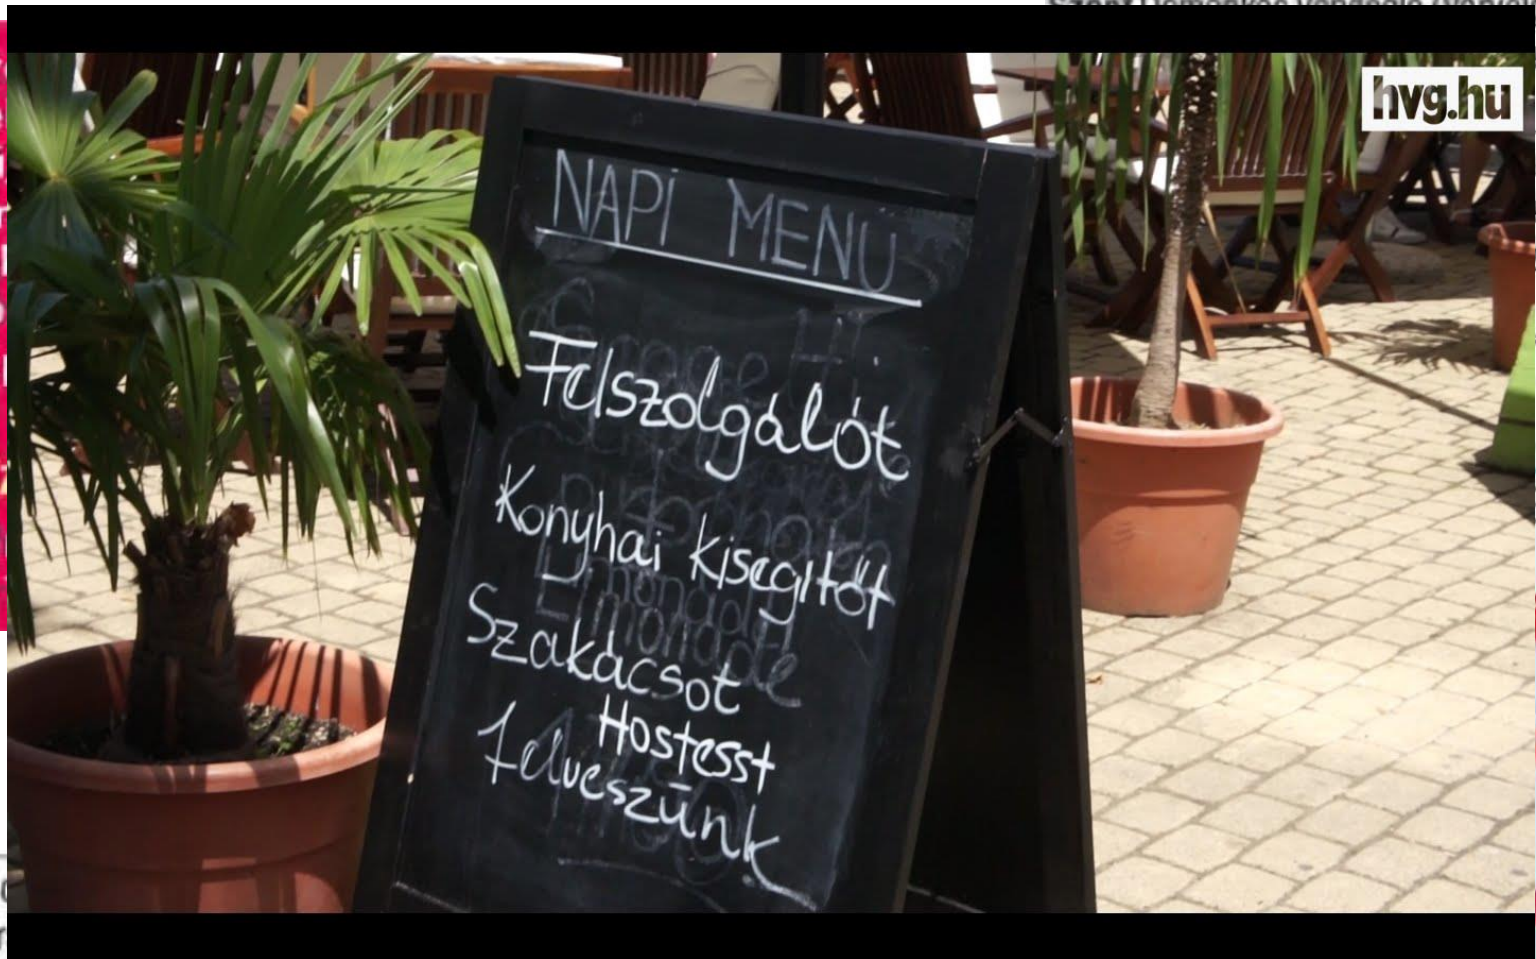 hvg.hu
NAPI MENÜ
Felszolgálót
Konyhai kisegítőt
Szakácsot
Hostesst
felveszünk